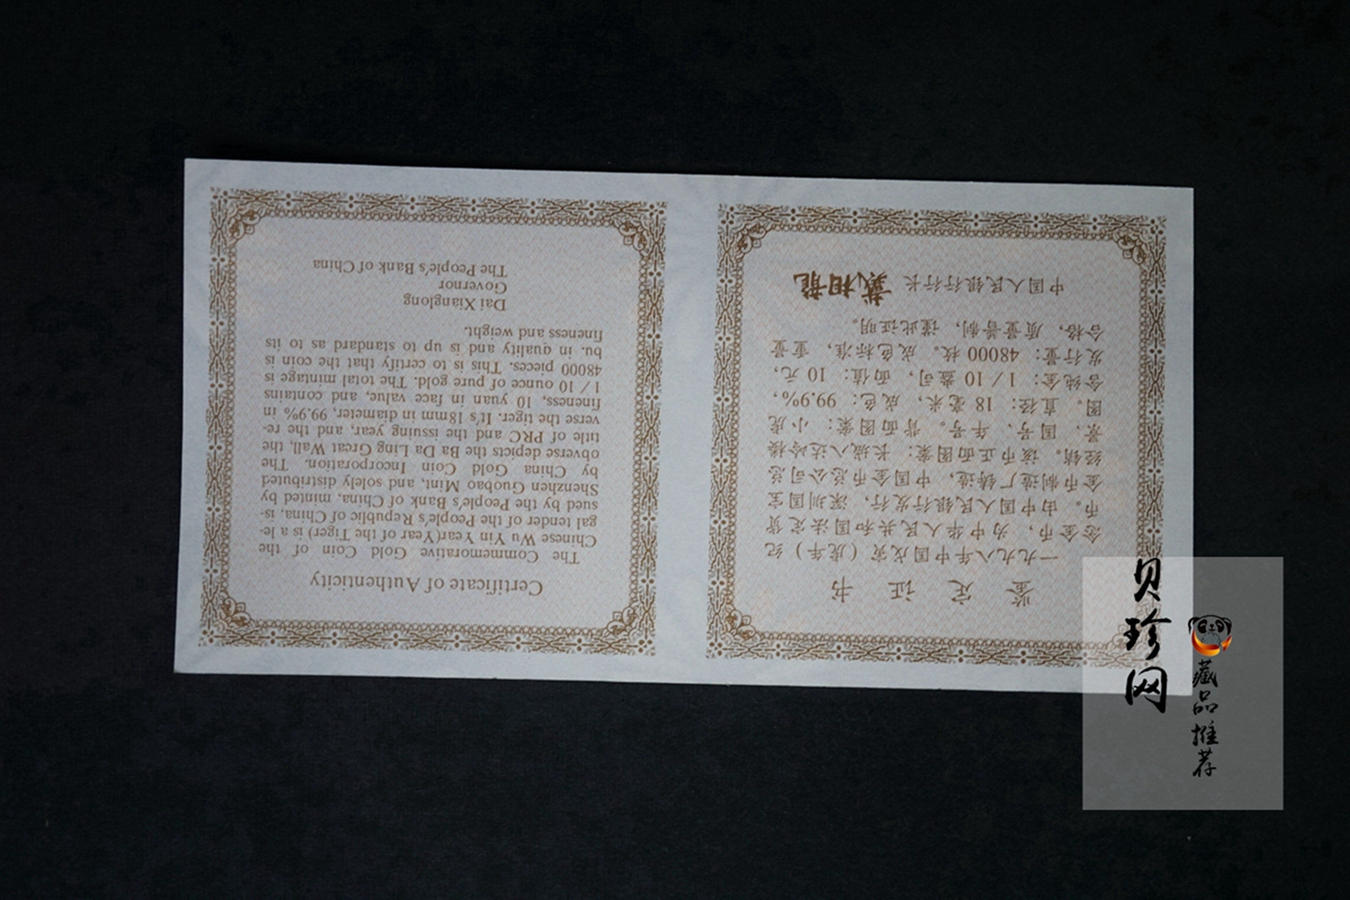 鉴定证书
一九九八年中国戊寅(虎年)纪
念金币,为中华人民共和国法定货
币。由中国人民银行发行,深圳国宝
金币制造厂铸造,中国金币总公司总
经销。该币正面图案:长城八达岭楼
景、国号、年号。背面图案:小虎
图。直径:18毫米,成色:99.9%,
含纯金:1/10盎司,面值:10元,
发行量:48000枚。成色标准,重量
合格,质量普制,谨此证明。
中国人民银行行长 戴相龙
Certificate of Authenticity
The Commemorative Gold Coin of the
Chinese Wu Yin Year(Year of the Tiger) is a le-
gal tender of the People's Republic of China, is-
sued by the People's Bank of China, minted by
Shenzhen Guobao Mint, and solely distributed
by China Gold Coin Incorporation. The
obverse depicts the Ba Da Ling Great Wall, the
title of PRC and the issuing year, and the re-
verse the tiger. It's 18mm in diameter, 99.9% in
fineness, 10 yuan in face value, and contains
1/10 ounce of pure gold. The total mintage is
48000 pieces. This is to certify that the coin is
bu. in quality and is up to standard as to its
fineness and weight.
Dai Xianglong
Governor
The People's Bank of China
贝珍网
藏品推荐